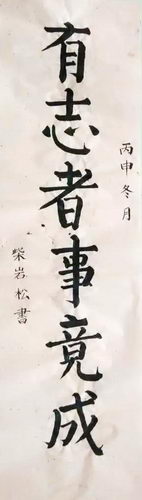 丙申冬月
有志者事竟成
柴岩松書